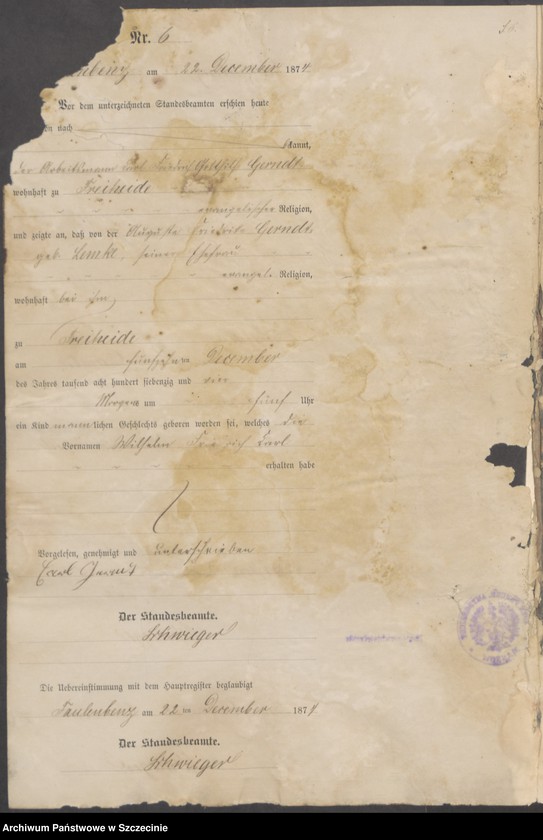 Nr. 6
am 22 ten December 1874
Vor dem unterzeichneten Standesbeamten erschien heute
nach
kannt,
der Arbeitsmann Carl Gerndt
wohnhaft zu Freiheide
evangelischer Religion,
und zeigte an, daß von der Auguste Friedrike Gerndt
geb. Lemke, seiner Ehefrau
evangel. Religion,
wohnhaft bei ihm,
zu Freiheide
am fünfzehnten December
des Jahres tausend acht hundert siebenzig und vier
Morgens um fünf Uhr
ein Kind männlichen Geschlechts geboren worden sei, welches die
Vornamen Wilhelm Friedrich Carl
erhalten habe
Vorgelesen, genehmigt und unterschrieben
Carl
Der Standesbeamte.
Schwieger
Die Uebereinstimmung mit dem Hauptregister beglaubigt
Faulenbenz am 22 ten December 1874
Der Standesbeamte.
Schwieger
Archiwum Państwowe w Szczecinie